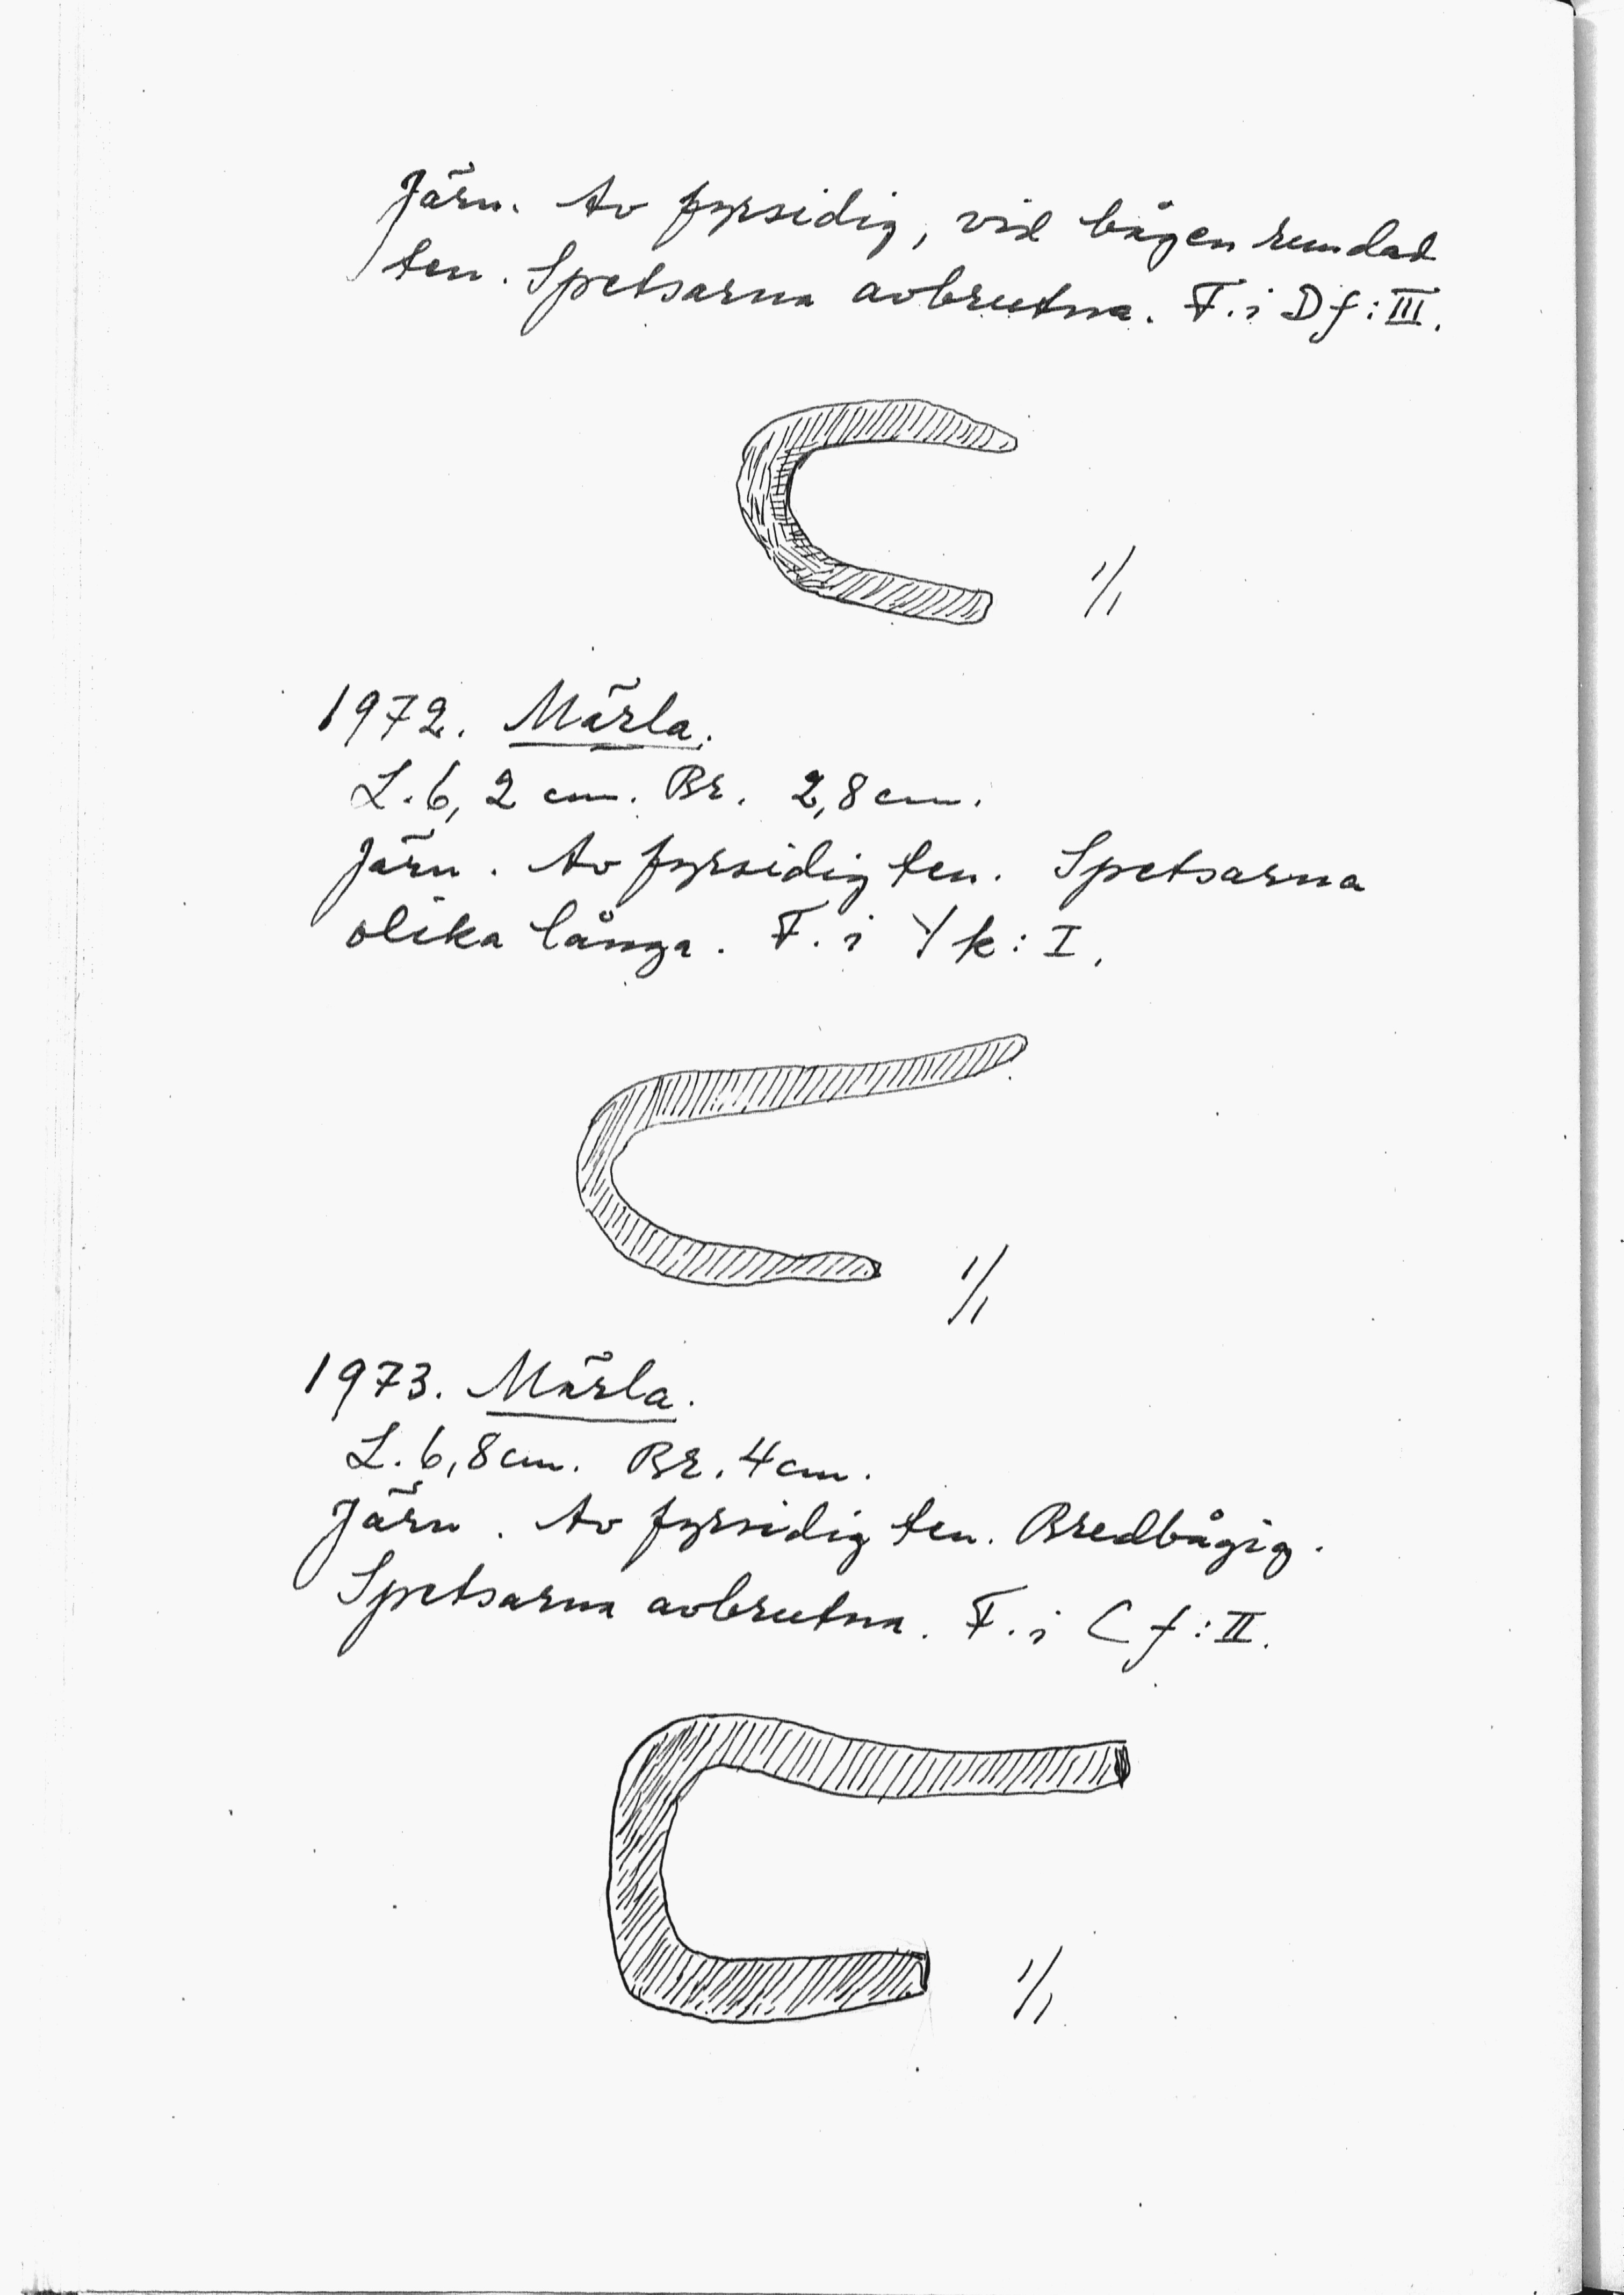 Järn. Av fyrsidig, vid bågen rundad
ten. Spetsarna avbrutna. F. i Df: III.
1/1
1972. Märla.
L. 6,2 cm. Br. 2,8 cm.
Järn. Av fyrsidig ten. Spetsarna
olika långa. F. i Yk: I.
1/1
1973. Märla.
L. 6,8 cm. Br. 4 cm.
Järn. Av fyrsidig ten. Bredbågig.
Spetsarna avbrutna. F. i Cf: II.
1/1